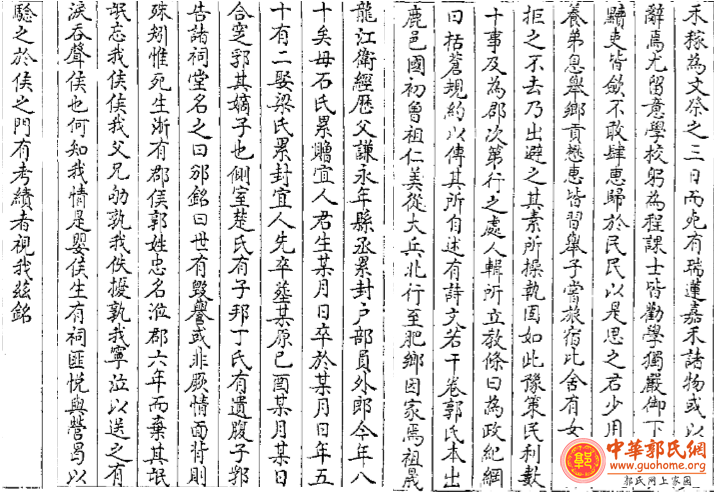 禾稼為文祭之三日而死有瑞蓮嘉禾諸物或以
辭焉尤留意學校躬為程課士皆勸學獨嚴御下
黠吏皆斂不敢肆惠歸於民民以是思之君少用
養弟恩舉鄉貢懋惠皆習舉子嘗旅宿比舍有女
拒之不去乃出避之其素所操執固如此豫策民利數
十事及為郡次第行之處人輯所立教條曰為政紀綱
曰括蒼規約以傳其所自述有詩文若干卷郭氏本出
鹿邑國初曾祖仁美從大兵北行至肥鄉因家焉祖晟
龍江衛經歷父謙永年縣丞累封戶部員外郎今年八
十矣母石氏累贈宜人君生某月日卒於某月日年五
十有二娶梁氏累封宜人先卒葬某原己酉某月某日
合窆郛其嫡子也側室楚氏有子邦丁氏有遺腹子郭
告諸祠堂名之曰邠銘曰世有毀譽或非厥情面背則
殊矧惟死生浙有郡侯郭姓忠名涖郡六年而棄其氓
氓忘我侯侯我父兄劬孰我佚擾孰我寧泣以送之有
淚吞聲侯也何知我情是嬰侯生有祠匪悅與營曷以
驗之於侯之門有考績者視我茲銘
中華郭氏網
www.guohome.org
郭氏网上家园